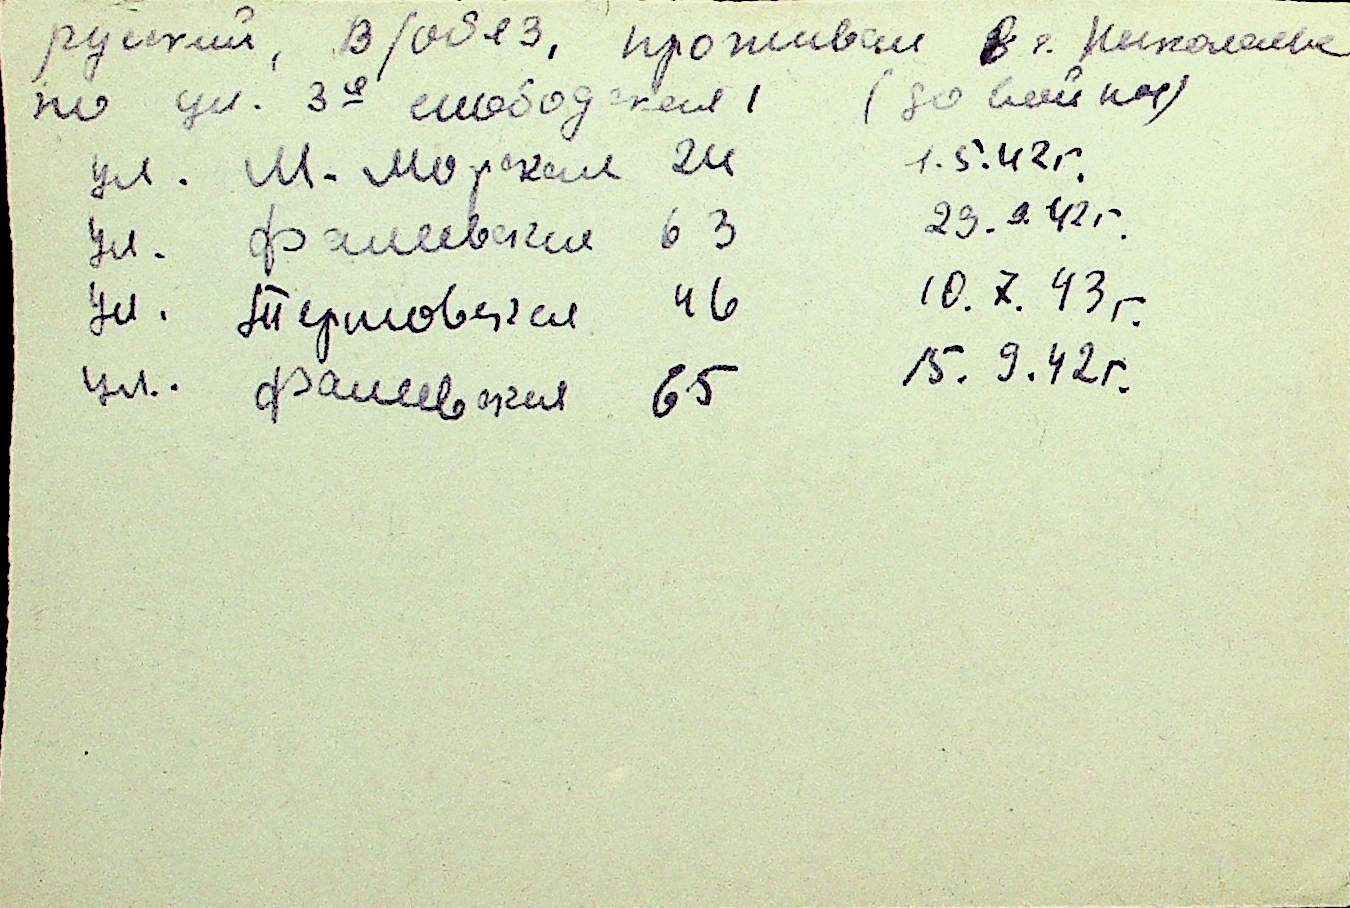 русский, в/обяз, проживал в г. Николаеве
по ул. 3я слободская 1 (до войны)
ул. М. Морская 24 1.5.42г.
ул. Фалеевская 63 29.9.42г.
ул. Терновская 46 10.7.43г.
ул. Фалеевская 65 15.9.42г.